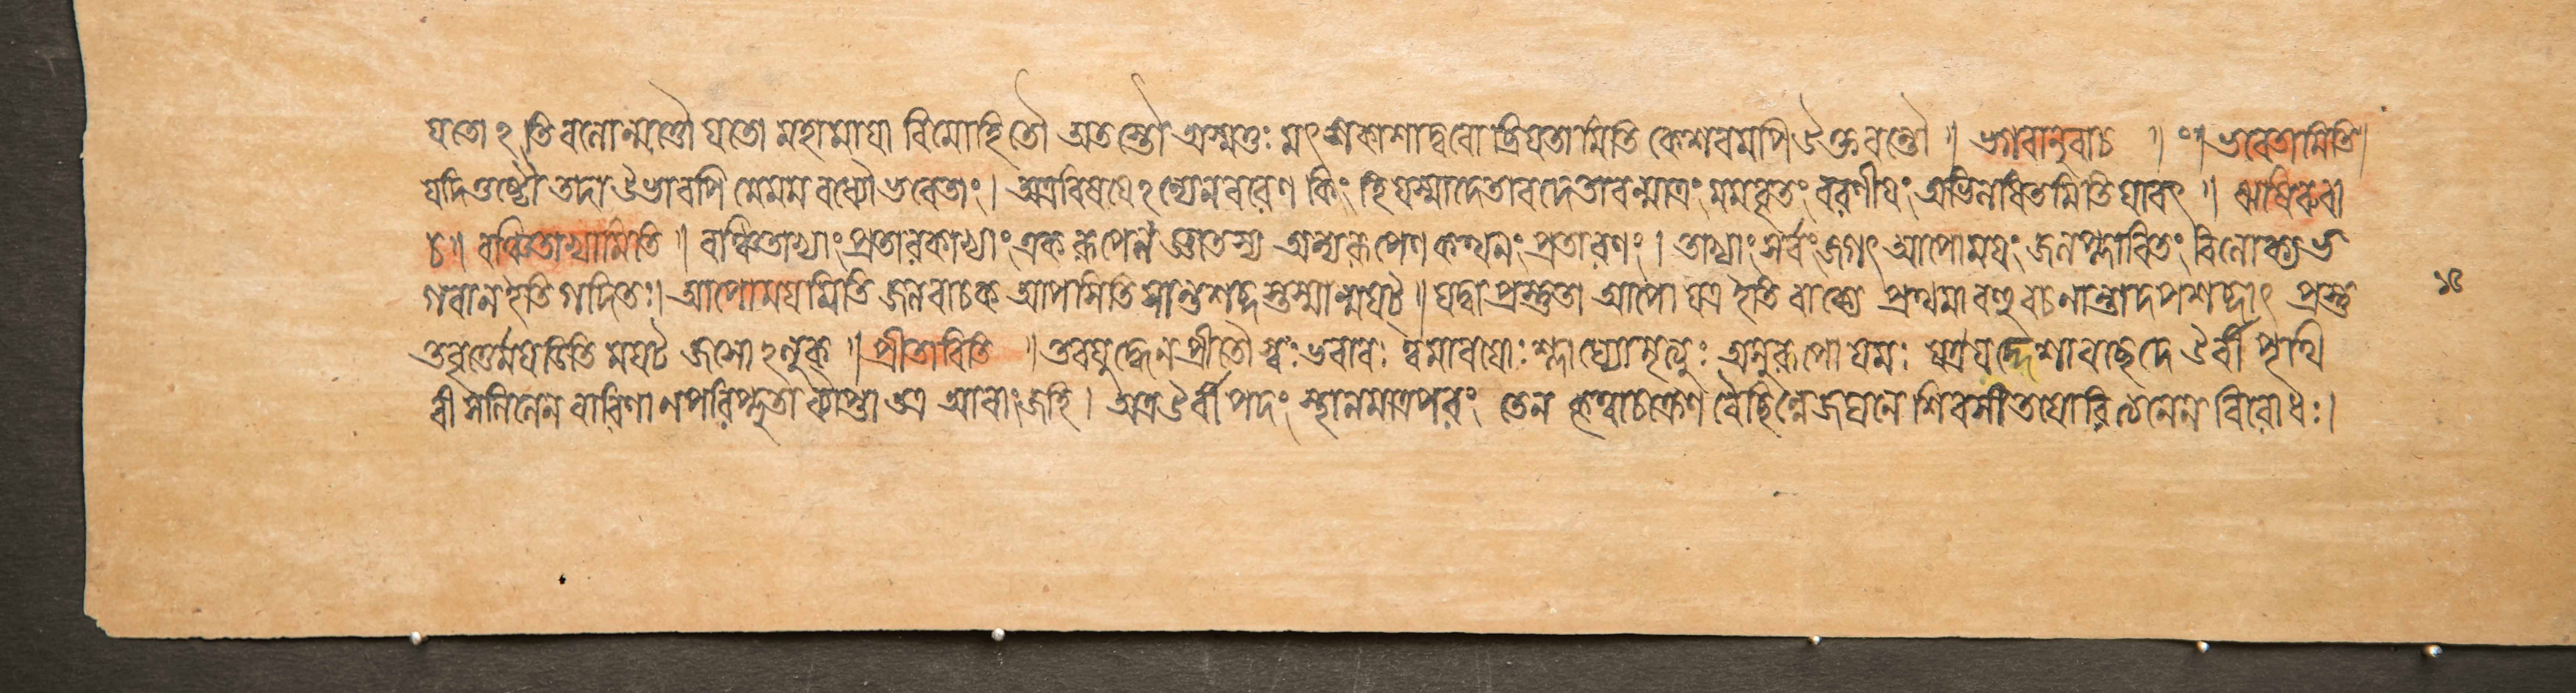 যতোঽতিবলোন্মত্তৌ যতো মহামাযা বিমোহিতৌ অতস্তৌ অস্মত্তঃ মৎসকাশাদ্বরো ব্রিযতামিতি কেশবমপি ঔক্তবন্তৌ ॥ ভগবানুবাচ ॥ ৹ ॥ ভবেতামিতি
যদি তুষ্টৌ তদা ঔভাবপি মে মম বধ্যৌ ভবেতাং । অত্র বিষযেঽন্যেন বরেণ কিং হি যস্মাদেতাবদেতাবন্মাত্রং মম বৃতং বরণীযং অভিলষিতমিতি যাবৎ ॥ ঋষিরুবা
চ ॥ বঞ্চিতাভ্যামিতি ॥ বঞ্চিতাভ্যাং প্রতারকাভ্যাং একরূপেন জ্ঞাতস্য অন্যরূপেণ কথনং প্রতারণং । তাভ্যাং সর্বং জগৎ আপোময়ং জলপ্লাবিতং বিলোক্য ভ
গবান ইতি গদিতঃ । আপোময়মিতি জলবাচক আপসিতি সান্তশব্দস্তস্মান্ময়ট ॥ যদ্বা প্রস্তুতা আপো যত্র ইতি বাক্যে প্রথমা বহুবচনান্তাদপশব্দাৎ প্রস্তু
তবৃত্তের্ময়ডিতি ময়ট জসোঽলুক্ ॥ প্রীতাবিতি ॥ তব যুদ্ধেন প্রীতৌ স্বঃ ভবাবঃ ত্বমাবযোঃ শ্লাঘ্যো মৃত্যুঃ মৃত্যুরূপো যমঃ যত্র যদ্দেশাবছেদে ঔর্বী পৃথি
বী সলিলেন বারিণা ন পরিপ্লুতা ব্যাপ্তা তত্র আবাং জহি । অত্র ঔর্বী পদং স্থানমাত্রপরং তেন কৃত্বা চক্রেণ বৈ ছিন্নে জঘনে শিরসী তযোরিত্যনেন বিরোধঃ ।
১৫